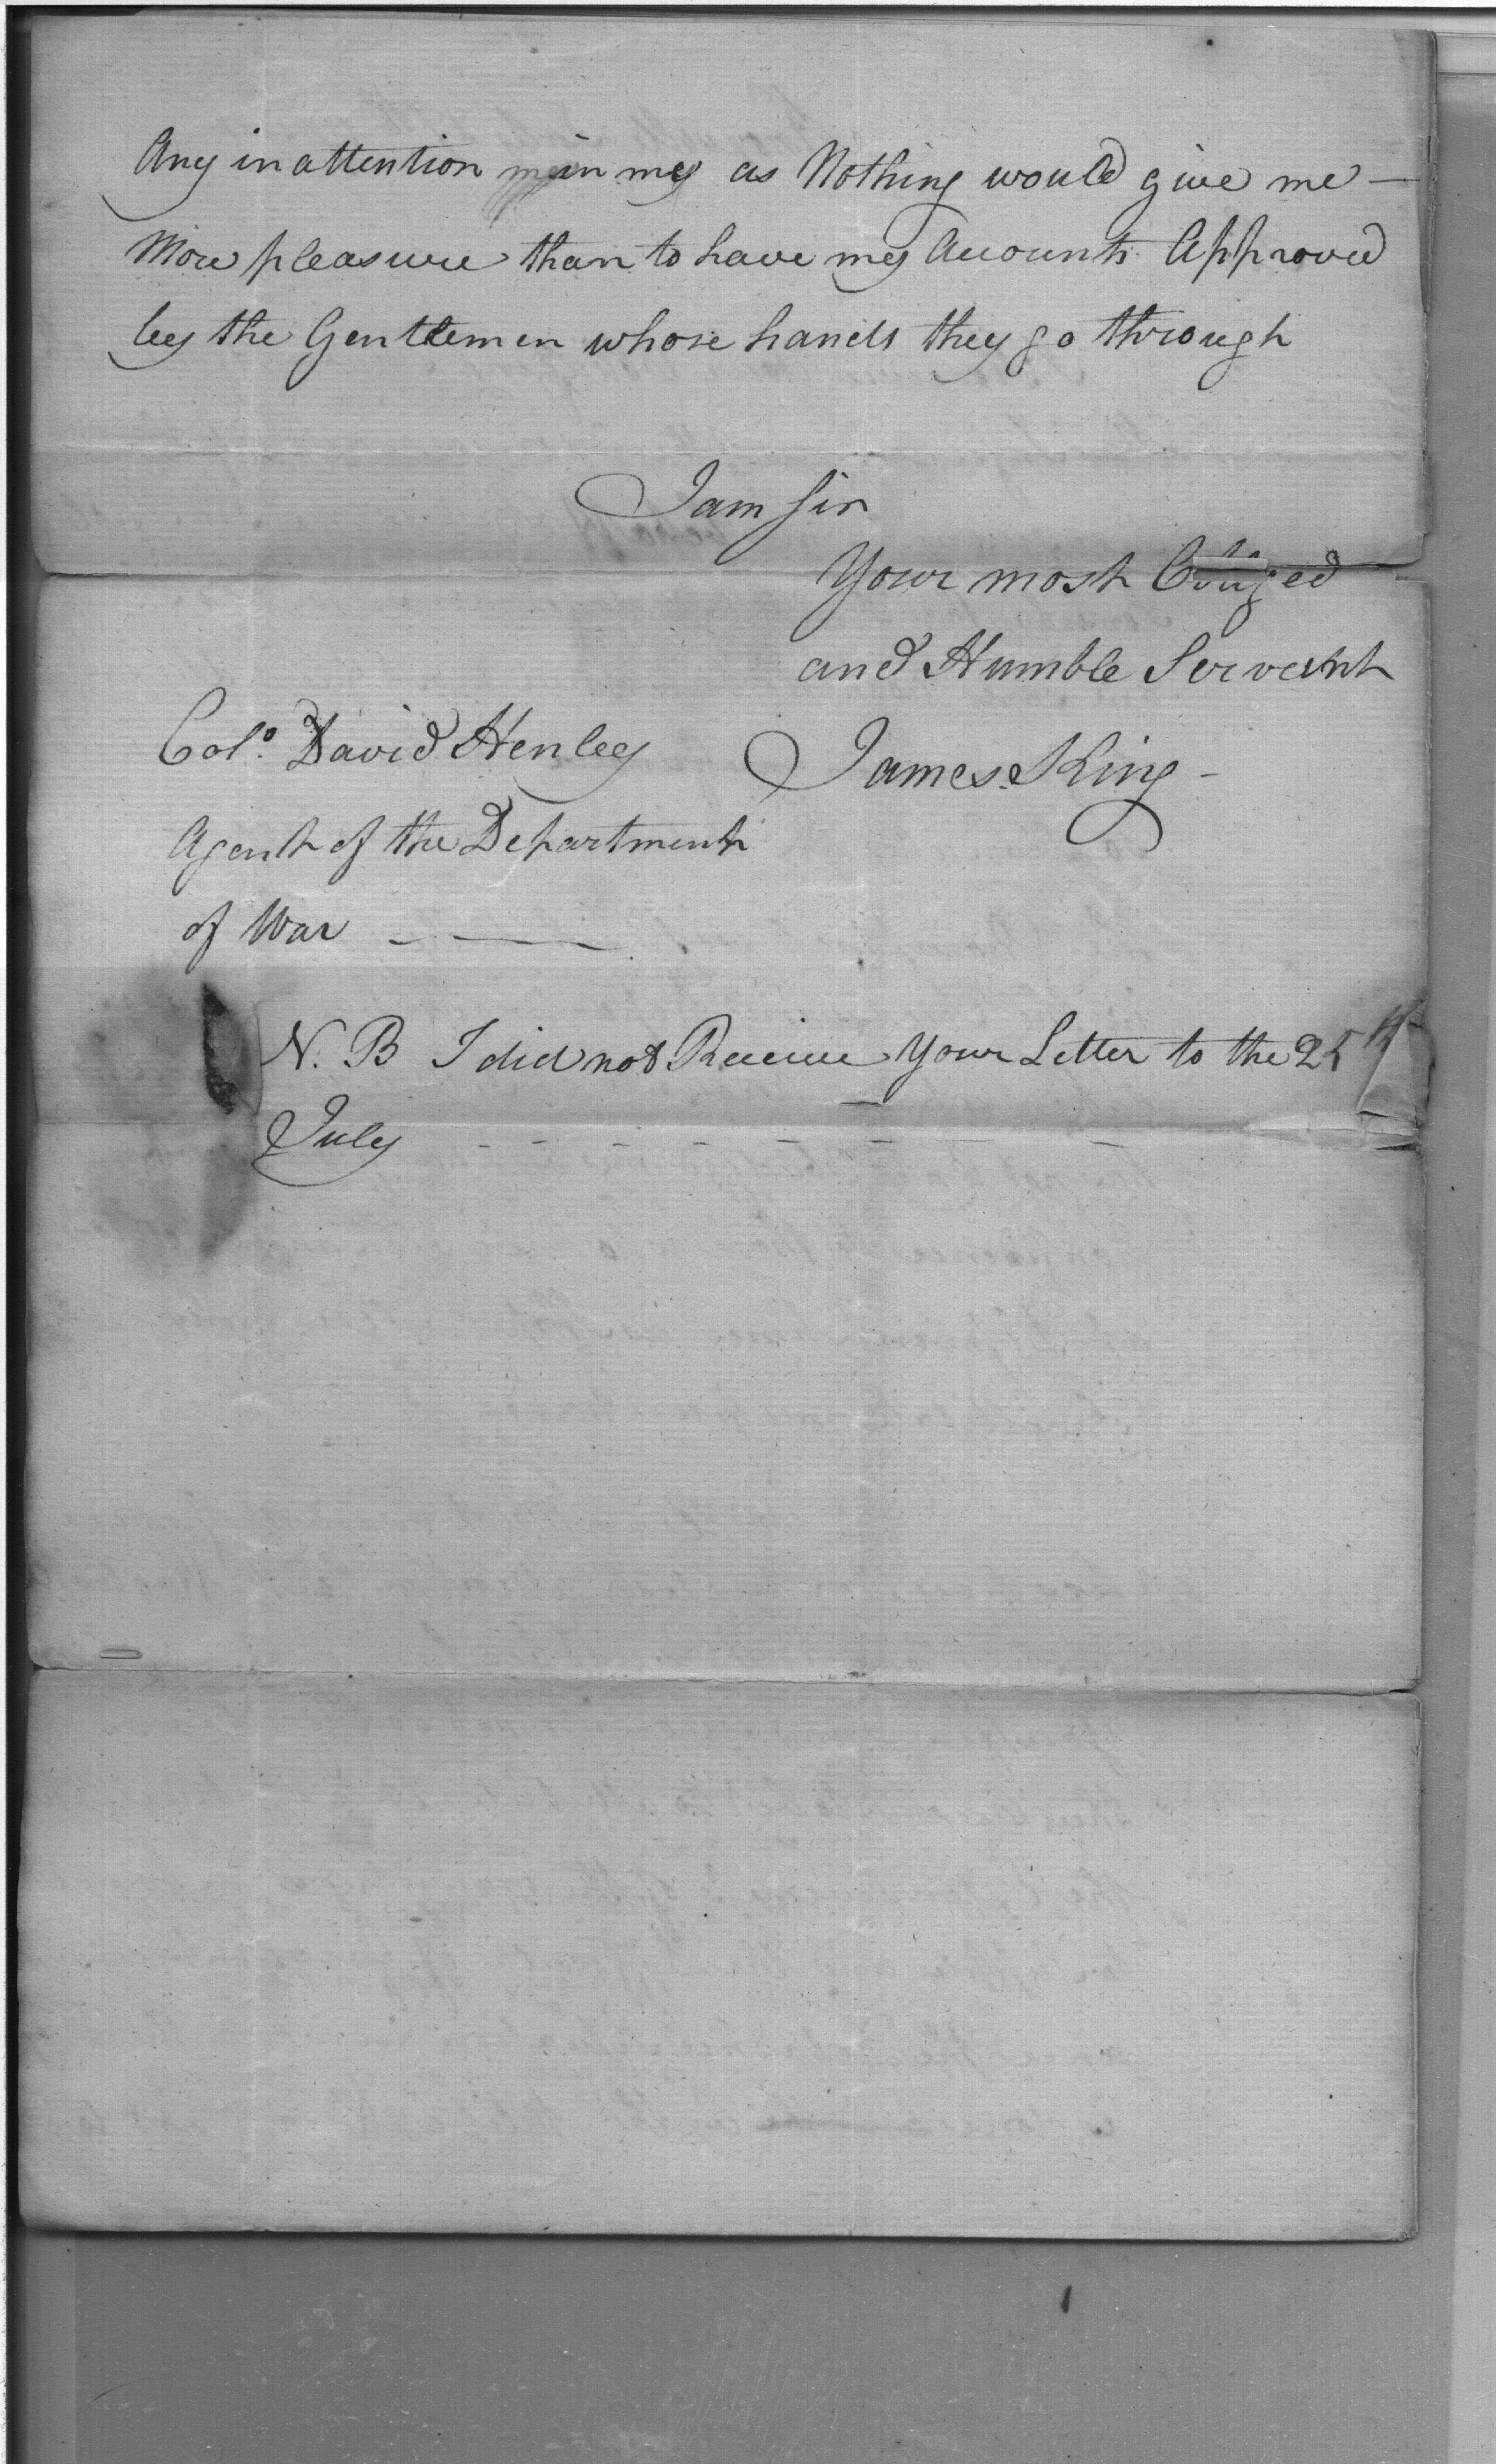 Any inattention in my as Nothing would give me —
More pleasure than to have my Accounts Approved
by the Gentlemen whose hands they go through
I am Sir
Your most Obliged
and Humble Servant
James King -
Colo. David Henley
Agent of the Department
of War - ——
N. B I did not Receive your Letter to the 25th
July - - - - - - -